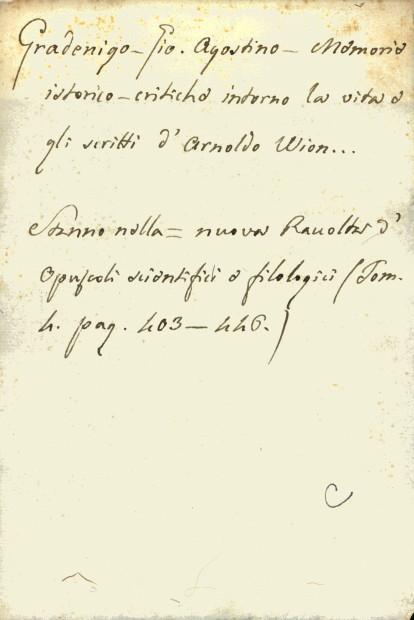 Gradenigo – Gio. Agostino – Memorie
istorico – critiche intorno la vita e
gli scritti d' Arnoldo Wion...
Stanno nella = nuova Raccolta d'
Opuscoli scientifici e filologici (Tom.
4. pag. 403 – 446.)
C